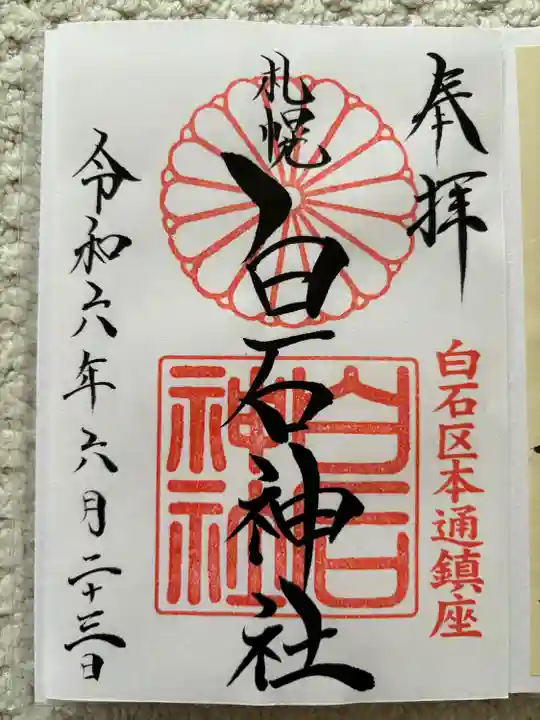 奉拝
白石区本通鎮座
札幌
白石神社
白石
神社
令和六年六月二十三日